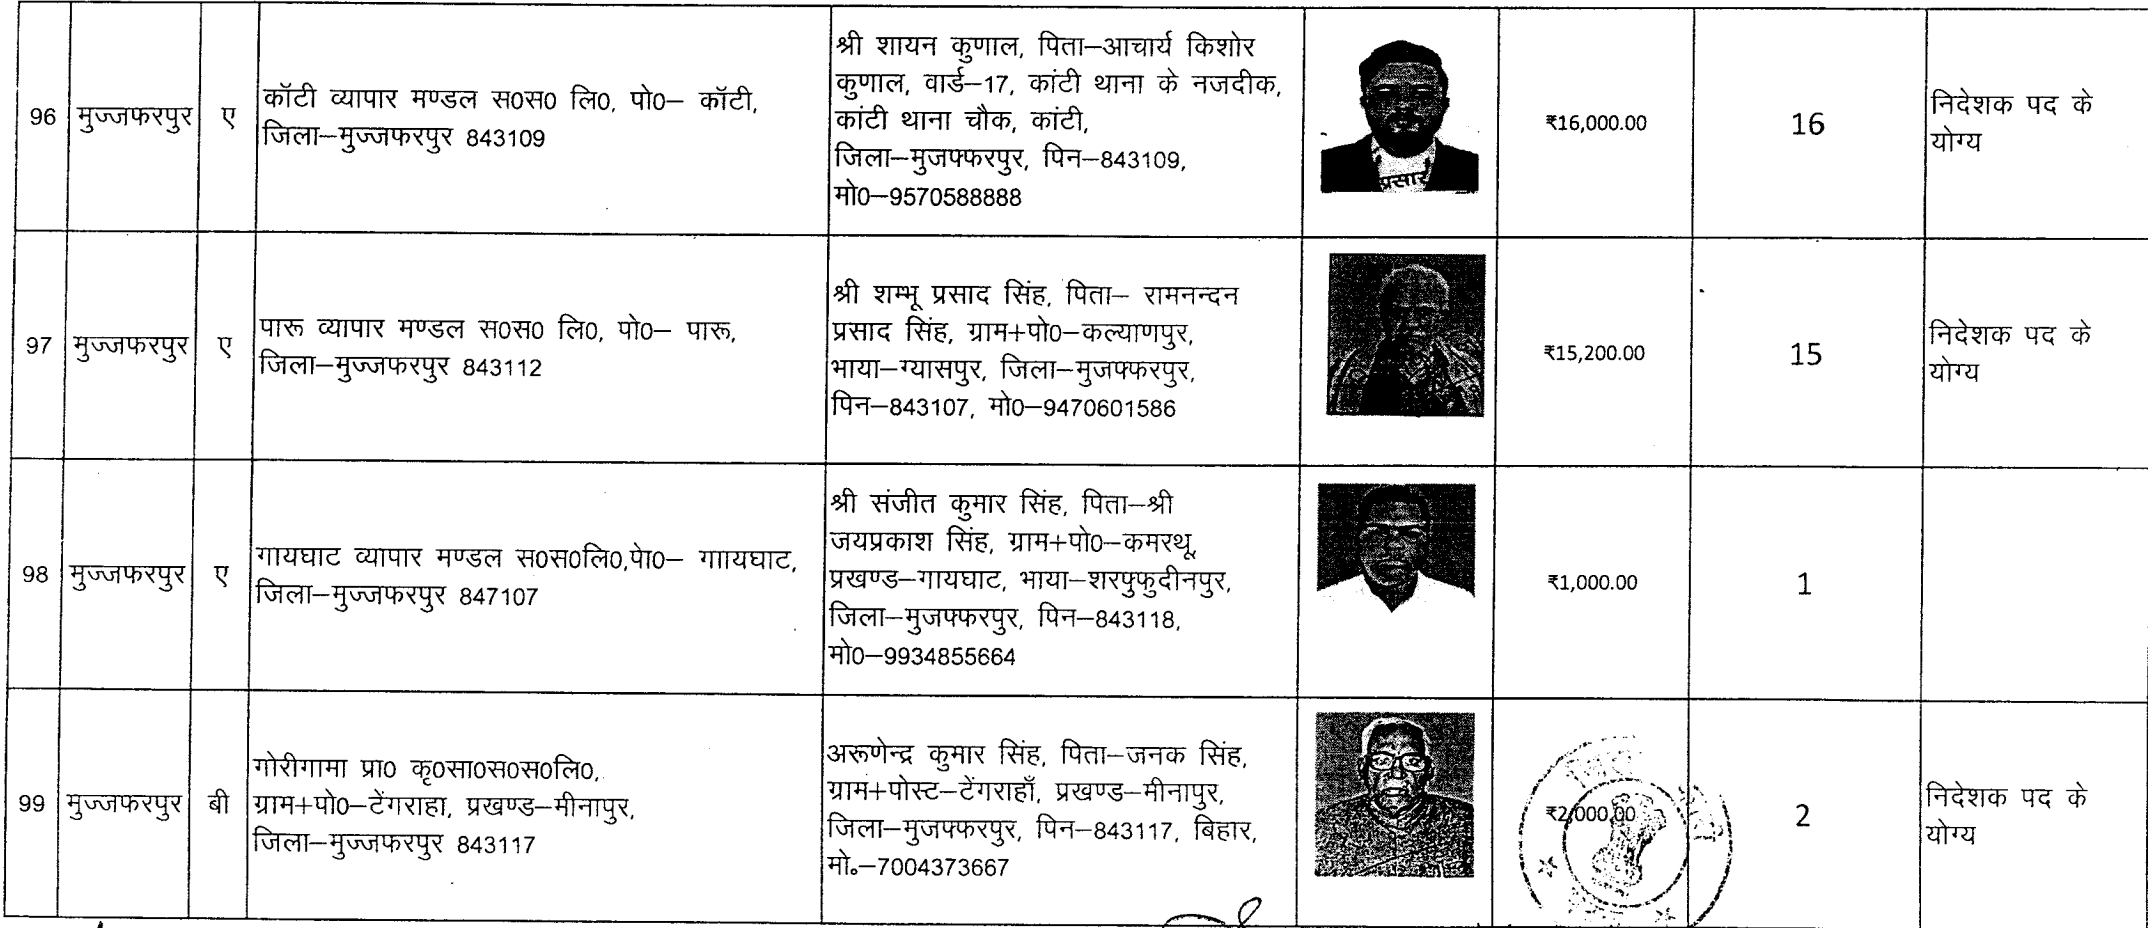 96
मुज्जफरपुर
ए
कॉटी व्यापार मण्डल स0स0 लि0, पो0– कॉटी,
जिला–मुज्जफरपुर 843109
श्री शायन कुणाल, पिता–आचार्य किशोर
कुणाल, वार्ड–17, कांटी थाना के नजदीक,
कांटी थाना चौक, कांटी,
जिला–मुजफ्फरपुर, पिन–843109,
मो0–9570588888
प्रसार
₹16,000.00
16
निदेशक पद के
योग्य
97
मुज्जफरपुर
ए
पारू व्यापार मण्डल स0स0 लि0, पो0– पारू,
जिला–मुज्जफरपुर 843112
श्री शम्भू प्रसाद सिंह, पिता– रामनन्दन
प्रसाद सिंह, ग्राम+पो0–कल्याणपुर,
भाया–ग्यासपुर, जिला–मुजफ्फरपुर,
पिन–843107, मो0–9470601586
₹15,200.00
15
निदेशक पद के
योग्य
98
मुज्जफरपुर
ए
गायघाट व्यापार मण्डल स0स0लि0,पेा0– गाायघाट,
जिला–मुज्जफरपुर 847107
श्री संजीत कुमार सिंह, पिता–श्री
जयप्रकाश सिंह, ग्राम+पो0–कमरथू,
प्रखण्ड–गायघाट, भाया–शरफुफुदीनपुर,
जिला–मुजफ्फरपुर, पिन–843118,
मो0–9934855664
₹1,000.00
1
99
मुज्जफरपुर
बी
गोरीगामा प्रा0 कृ0सा0स0स0लि0,
ग्राम+पो0–टेंगराहा, प्रखण्ड–मीनापुर,
जिला–मुज्जफरपुर 843117
अरूणेन्द्र कुमार सिंह, पिता–जनक सिंह,
ग्राम+पोस्ट–टेंगराहाँ, प्रखण्ड–मीनापुर,
जिला–मुजफ्फरपुर, पिन–843117, बिहार,
मो०–7004373667
₹2,000.00
2
निदेशक पद के
योग्य